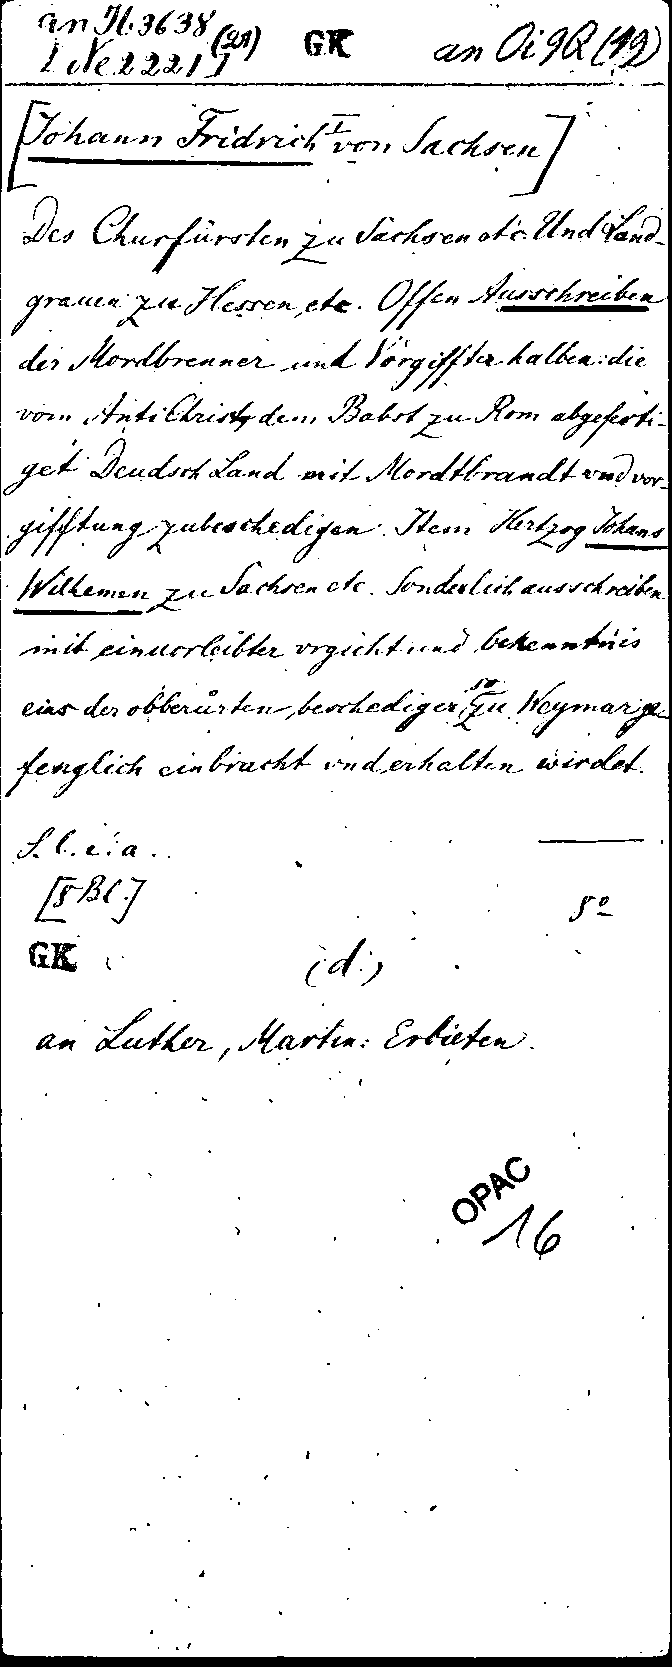 an Il 3638 (201) GK an Oi 9Q (19)
1 Ne 2221 I
[Johann Fridrich I von Sachsen]
Des Churfürsten zu Sachsen etc. Und Land-
grauen zu Hessen, etc. Offen Ausschreiben
der Mordbrenner und Vorgiffter halben: die
vom AntiChrist, dem Babst zu Rom abgeferti-
get Deudsch Land mit Mordtbrandt vnd vor-
gifftung zubeschedigen. Item Hertzog Johans
Wilhemen zu Sachsen etc. Sonderlich ausschreiben
mit einuorleibter vrgicht und bekenntnis
eins der obberürten beschediger, so zu Weymar ge-
fenglich einbracht vnd erhalten wirdet.
S. l. e. a.
[8 Bl.] 8º
GK (d.)
an Luther, Martin: Erbieten.
OPAC
16